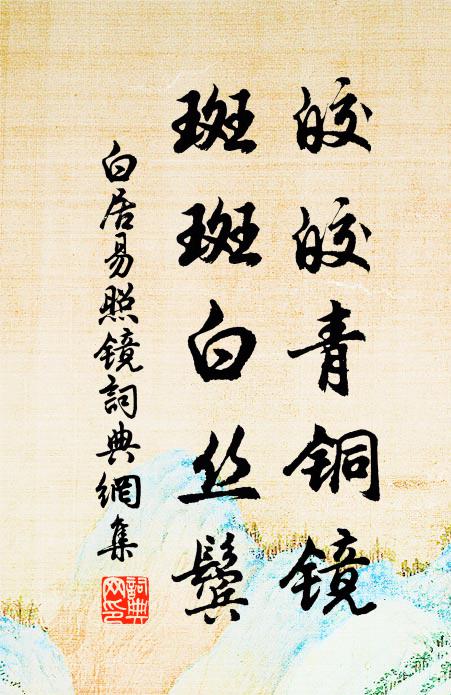 皎皎青铜镜
斑斑白丝鬓
白居易照镜词典網集
詞典网印